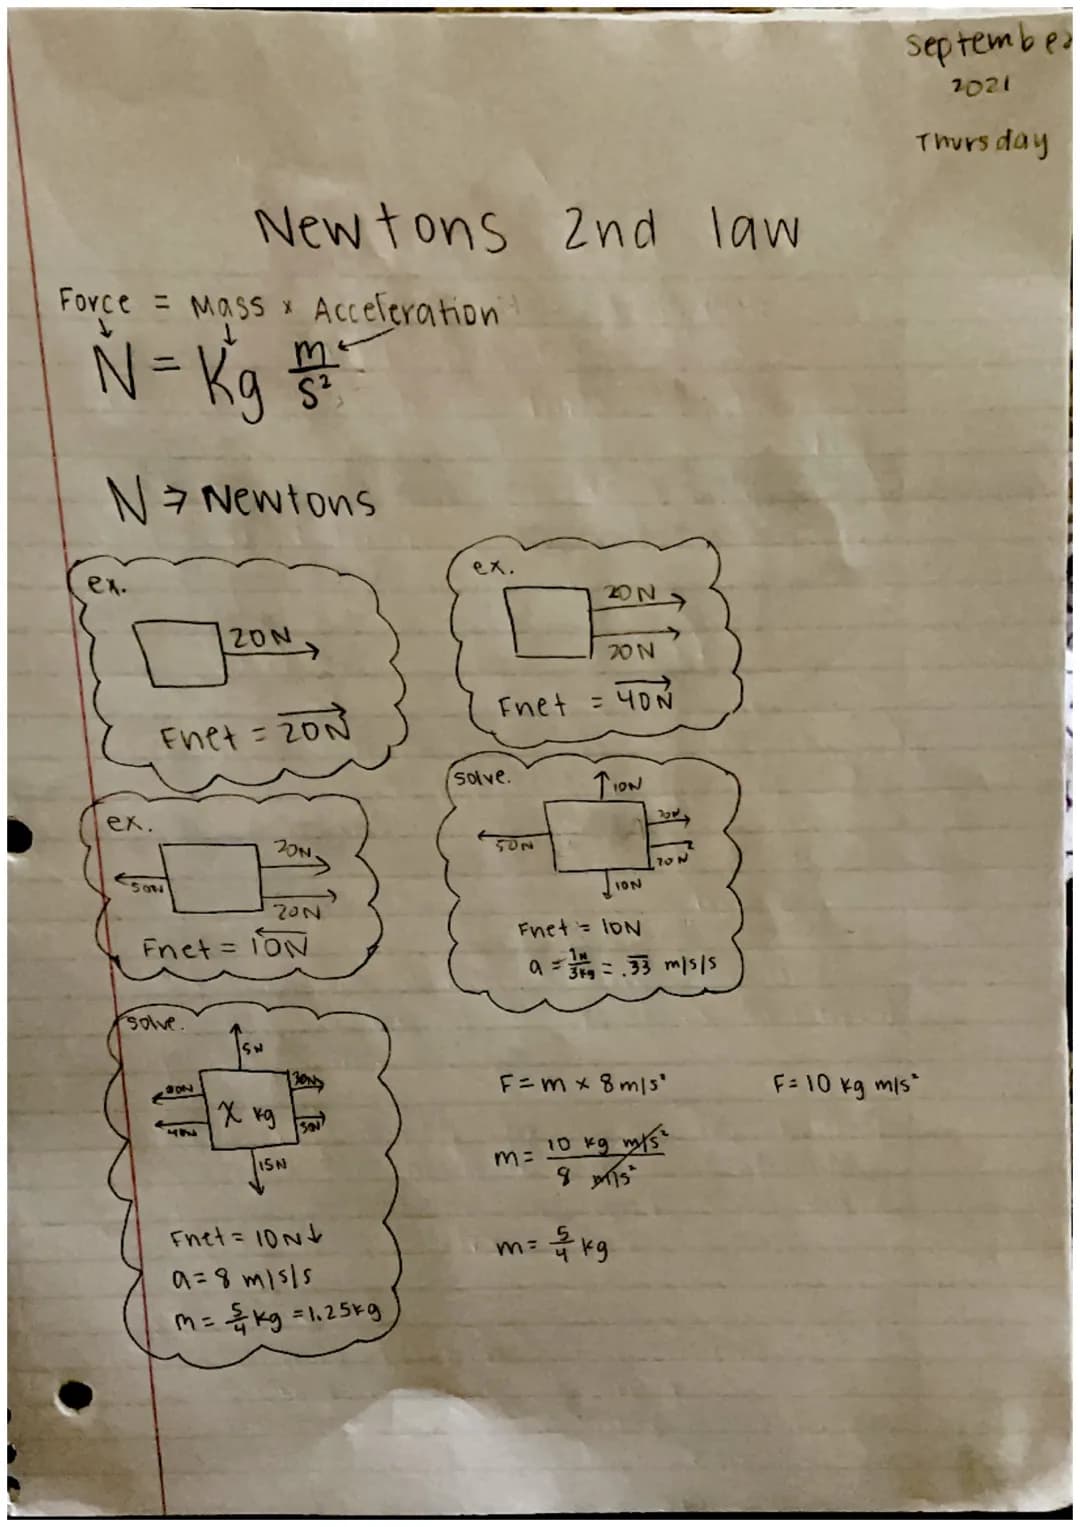 September
2021
Thursday
Newtons 2nd law
Force = Mass x Acceleration
N = Kg m/s²
N → Newtons
ex.
20N
Fnet = 20N
ex.
20N
20N
Fnet = 40N
ex.
20N
50N
20N
Fnet = 10N
solve.
10N
50N
20N
20N
10N
Fnet = 10N
a = 1N/3kg = .33 m/s/s
solve.
5N
30N
40N
X kg
50N
15N
Fnet = 10N↓
a = 8 m/s/s
m = 5/4 kg = 1.25kg
F = m x 8m/s²
F = 10 kg m/s²
m = 10 kg m/s² / 8 m/s²
m = 5/4 kg